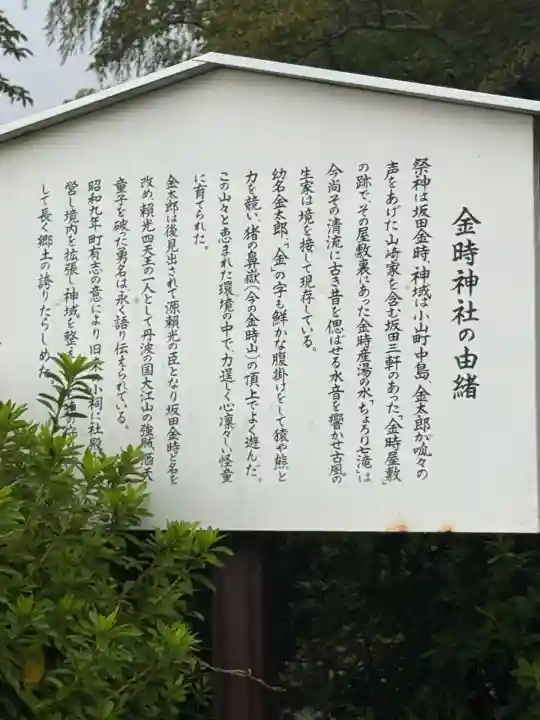 金時神社の由緒
祭神は坂田金時、神域は小山町中島、金太郎が呱々の
声をあげた山崎家を含む坂田三軒のあった「金時屋敷」
の跡で、その屋敷裏にあった金時産湯の水「ちょろり七滝」は
今尚その清流に古き昔を偲ばせる水音を響かせ古風の
生家は境を接して現存している。
幼名金太郎、「金」の字も鮮かな腹掛けをして猿や熊と
力を競い、猪の鼻嶽(今の金時山)の頂上でよく遊んだ。
この山々と恵まれた環境の中で、力逞しく心凛々しい怪童
に育てられた。
金太郎は後見出されて源頼光の臣となり坂田金時と名を
改め、頼光四天王の一人として丹波の国大江山の強賊、酒天
童子を破った勇名は、永く語り伝えられている。
昭和九年町有志の意により旧来の小祠に社殿
営し境内を拡張し神域を整え
して長く郷土の誇りたらしめた